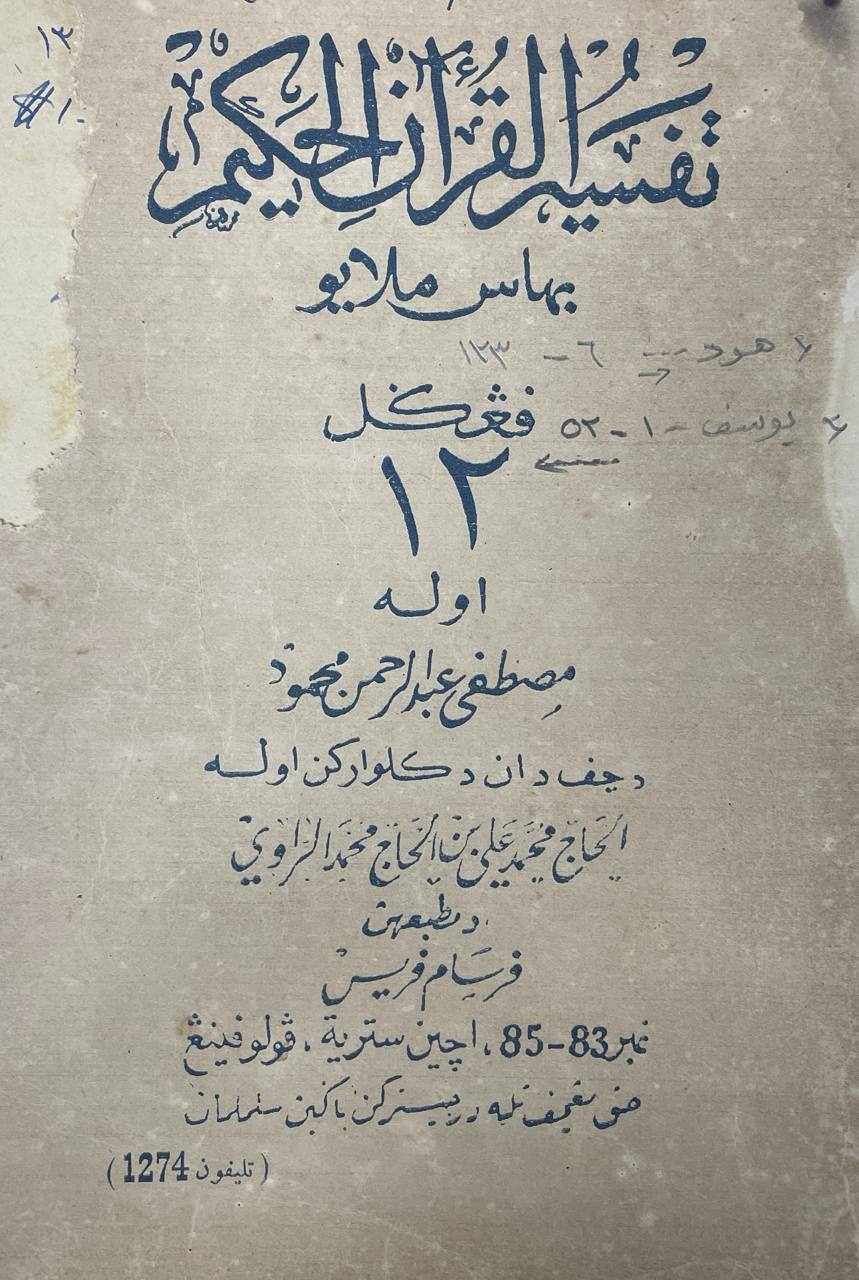 ١٣
١٠
تفسير القرءان الحكيم
بهاس ملايو
هود --- ٦ - ١٢٣
يوسف - ١ - ٥٢
ڤڠݢل
١٢
اوله
مصطفى عبدالرحمن محمود
دچيتق دان دكلواركن اوله
الحاج محمد علي بن الحاج محمد الراوي
دمطبعهن
ڤرسام ڤريس
نمبر 83-85، اچين ستريت، ڤولو ڤينڠ
حق مڠچف تله درجيستركن باݢين سلمان
(تليفون 1274)